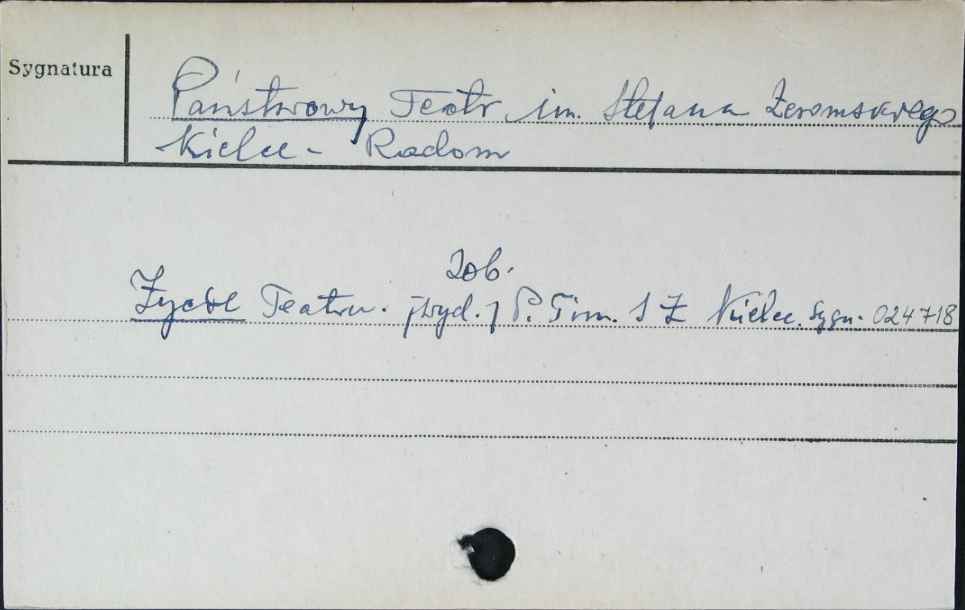 Sygnatura
Państwowy Teatr im. Stefana Żeromskiego
Kielce - Radom
zob.
Życie Teatru. [wyd.] P. T. im. S Ż Kielce. Sygn. 024718